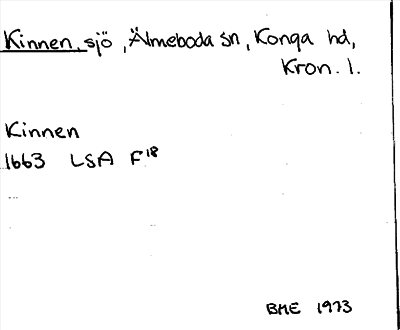 Kinnen, sjö, Älmeboda sn, Konga hd,
Kron. l.
Kinnen
1663 LSA F18
BME 1973